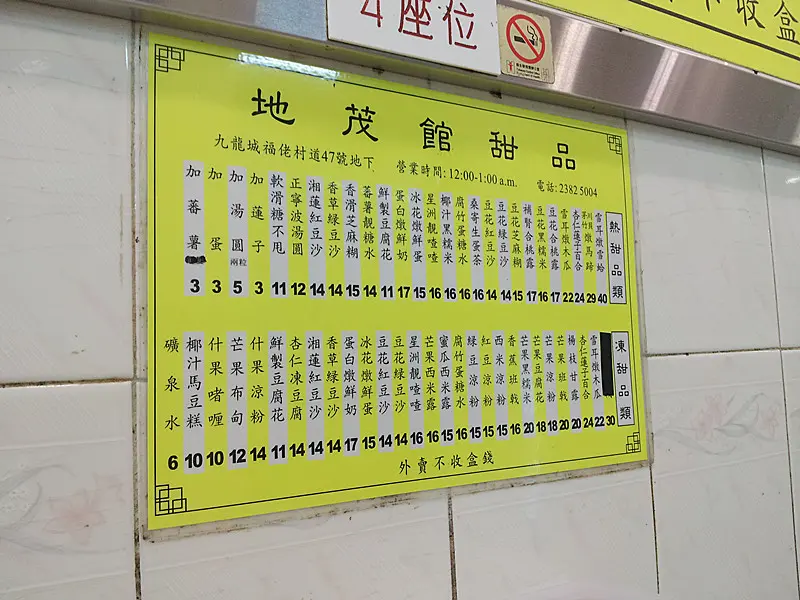 4座位
不收盒
地茂館甜品
九龍城福佬村道47號地下 營業時間: 12:00-1:00 a.m. 電話: 2382 5004
熱甜品類
雪耳燉雪蛤 40
川貝燉馬蹄 29
杏仁蓮子百合 24
雪耳燉木瓜 22
豆花合桃露 17
豆花黑糯米 16
補腎合桃露 17
豆花芝麻糊 15
豆花綠豆沙 14
豆花紅豆沙 14
桑寄生蛋茶 16
腐竹蛋糖水 16
椰汁黑糯米 16
星洲靚喳喳 16
冰花燉鮮蛋 15
蛋白燉鮮奶 17
鮮製豆腐花 11
蕃薯靚糖水 14
香滑芝麻糊 15
香草綠豆沙 14
湘蓮紅豆沙 14
正寧波湯圓 12
軟滑糖不甩 11
加蓮子 3
加湯圓 兩粒 5
加蛋 3
加蕃薯 3
凍甜品類
30
雪耳燉木瓜 22
杏仁蓮子百合 24
楊枝甘露 20
芒果班戟 20
芒果涼粉 18
芒果豆腐花 18
芒果黑糯米 20
香蕉班戟 16
西米涼粉 15
紅豆涼粉 15
綠豆涼粉 15
腐竹蛋糖水 16
蜜瓜西米露 15
芒果西米露 16
星洲靚喳喳 16
豆花綠豆沙 14
豆花紅豆沙 14
冰花燉鮮蛋 15
蛋白燉鮮奶 17
香草綠豆沙 14
湘蓮紅豆沙 14
杏仁凍豆腐 14
鮮製豆腐花 11
什果涼粉 14
芒果布甸 12
什果啫喱 10
椰汁馬豆糕 10
礦泉水 6
外賣不收盒錢